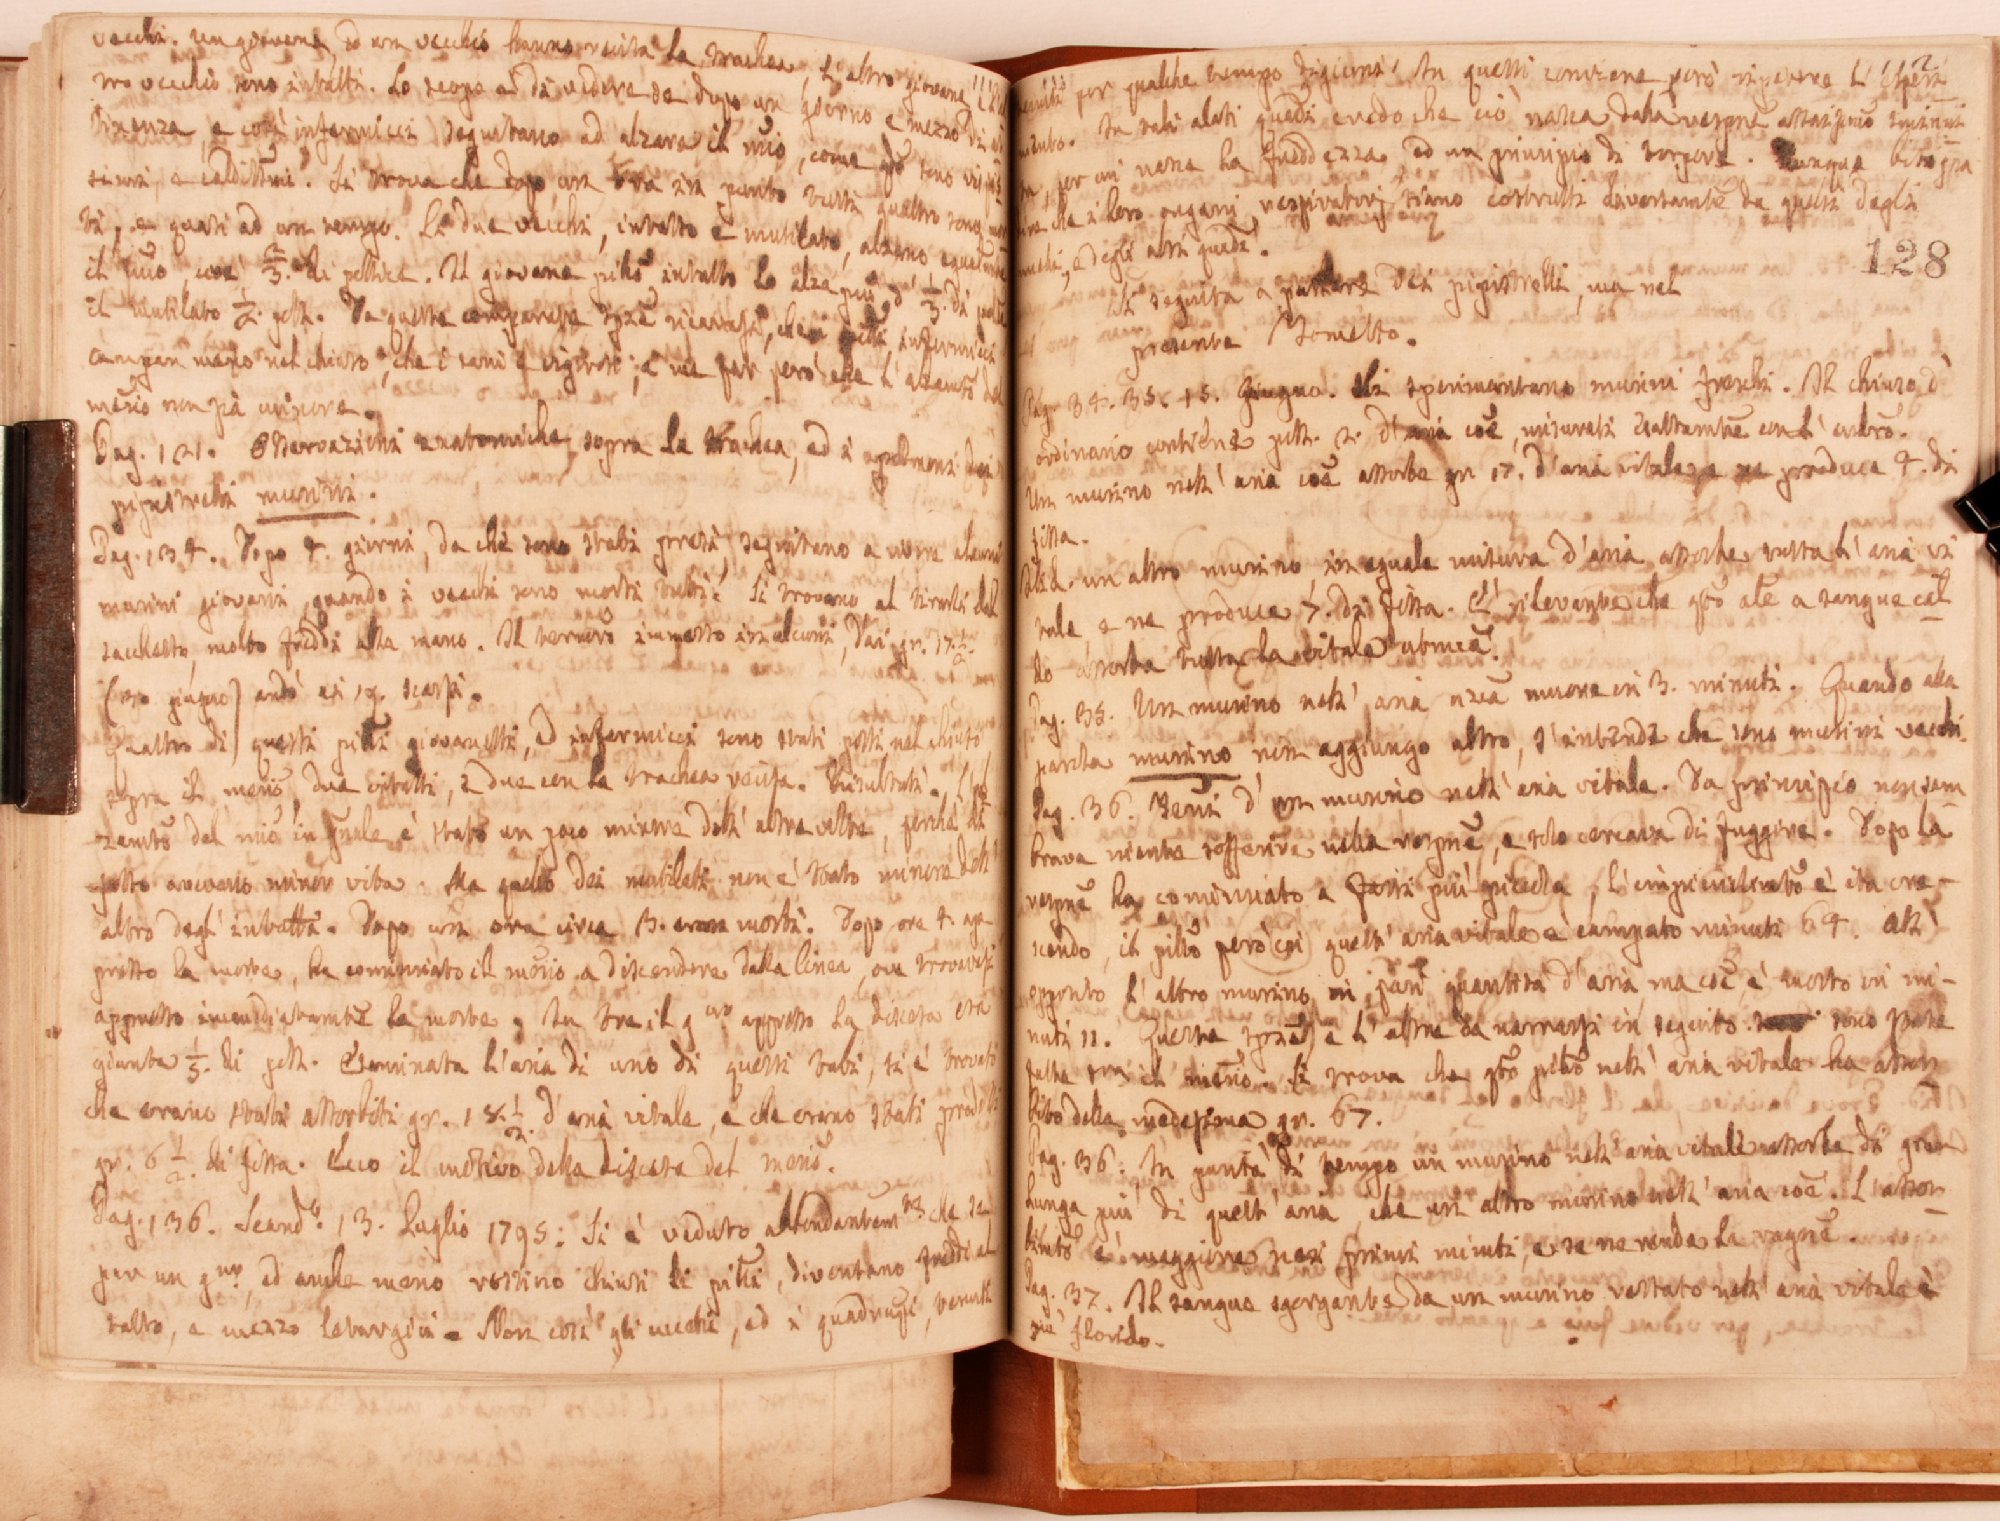 vecchi. Un giovane, ed un vecchio hanno recisa la trachea, l'altro giovane
tro vecchio sono intatti. Lo scopo è di vedere se dopo un giorno e mezzo di
tinenza, e così infermicci seguitano ad alzare il mȓio, come qdo sono
simi, e caldissimi. Si trova che dopo un ora in punto tutti quattro sono
ti, e quasi ad un tempo. Li due vecchi, intatto e mutilato, alzano egualmte
il mrio, cioè 2/3. di pollice. Il giovane pillo intatto lo alza più d' 1/3. di
il mutilato 1/2. poll. Da queste comparate spze ricavasi, che i pilli infermicci
campan meno nel chiuso, che i sani e vigorosi; a me par però che l'alzamto del
mȓio non sia minore.
Pag. 121. Osservazioni anatomiche sopra la trachea, ed i polmoni dei
pipistrelli murini.
Pag. 134. Dopo 4. giorni, da che sono stati presi, seguitano a vivere alcuni
murini giovani, quando i vecchi sono morti tutti. Si trovano al tirarli dal
sacchetto, molto freddi alla mano. Il termro immesso in alcuni, dai gr. 17 1/2.
(20 giugno) andò ai 19. scarsi.
Quattro di questi pilli giovanetti, ed infermicci sono stati posti nel chiuso
sopra il mȓio, due intatti, e due con la trachea recisa. Risultati. L'al
zamto del mȓio in gnale è stato un poco minore dell'altre volte, perchè di
fatto avevano minor vita. Ma quello dei mutilati non è stato minore dell'
altro degl'intatti. Dopo un ora circa 3. erano morti. Dopo ore 4. ap
presso la morte, ha cominciato il mȓio a discendere dalla linea, ove trovavasi
appresso immediatamte la morte. In tre il gno appresso la discesa era
giunta 1/3. di poll. Esaminata l'aria di uno di questi tubi, si è trovato
che erano stati assorbiti gr. 18 1/2. d'aria vitale, e che erano stati prodotti
gr. 6 1/2. di fissa. Ecco il motivo della discesa del mȓio.
Pag. 136. Scand. 13. Luglio 1795: Si è veduto abbondantemte che se
per un gno, ed anche meno restino chiusi li pilli, diventano freddi al
tatto, e mezzo letargici. Non così gli uccelli, ed i quadrupi, tenuti
per qualche tempo digiuni! In questi conviene però ripetere l'esperi
mento. In tali alati quadi credo che ciò nasca dalla respne assaissimo
per cui nasca la freddezza, ed un principio di torpore. Dunque bisogna
dire che i loro organi respiratori siano costrutti diversamte da questi degli
uccelli, e degli altri quadi.
128
Si seguita a parlare dei pipistrelli, ma nel
presente Tometto.
Pag. 34. 35. 15. Giugno. Si sperimentano murini freschi. Il chiuso d'
ordinario contiene poll. 2. d'aria coe, misurati esattamte con l'
Un murino nell'aria coe assorbe gr 17. d'aria vitale, e ne produce 4. di
fissa.
Ibid. un altro murino, in eguale misura d'aria assorbe tutta l'aria vi
tale e ne produce 7. di fissa. È rilevante che qto ale a sangue cal
do assorba tutta la vitale
Pag. 35. Un murino nell'aria muore in 3. minuti. Quando alla
parola murino non aggiungo altro, s'intende che sono murini vecchi.
Pag. 36. Tenni d' un murino nell'aria vitale. Da principio non sem
brava niente soffrire nella respne, e solo cercava di fuggire. Dopo la
respne ha cominciato a farsi più piccola, l'impicciolimto è ita cre-
scendo, il pillo però in quell'aria vitale è campato minuti 64. All'
opposto l'altro murino in pari quantità d'aria, ma coe, è morto in mi-
nuti 11. Queste spze, e l'altre da narrarsi in seguito sono state
fatte sopra il mȓio. Si trova che qto pillo nell'aria vitale ha assor
bito della medesima gr. 67.
Pag. 36. In parità di tempo un murino nell'aria vitale assorbe di gran
lunga più di quell'aria, che un altro murino nell'aria coe. L'assor
bimto è maggiore nei primi minuti, e se ne rende la ragne.
Pag. 37. Il sangue sgorgante da un murino restato nell'aria vitale è
più florido.